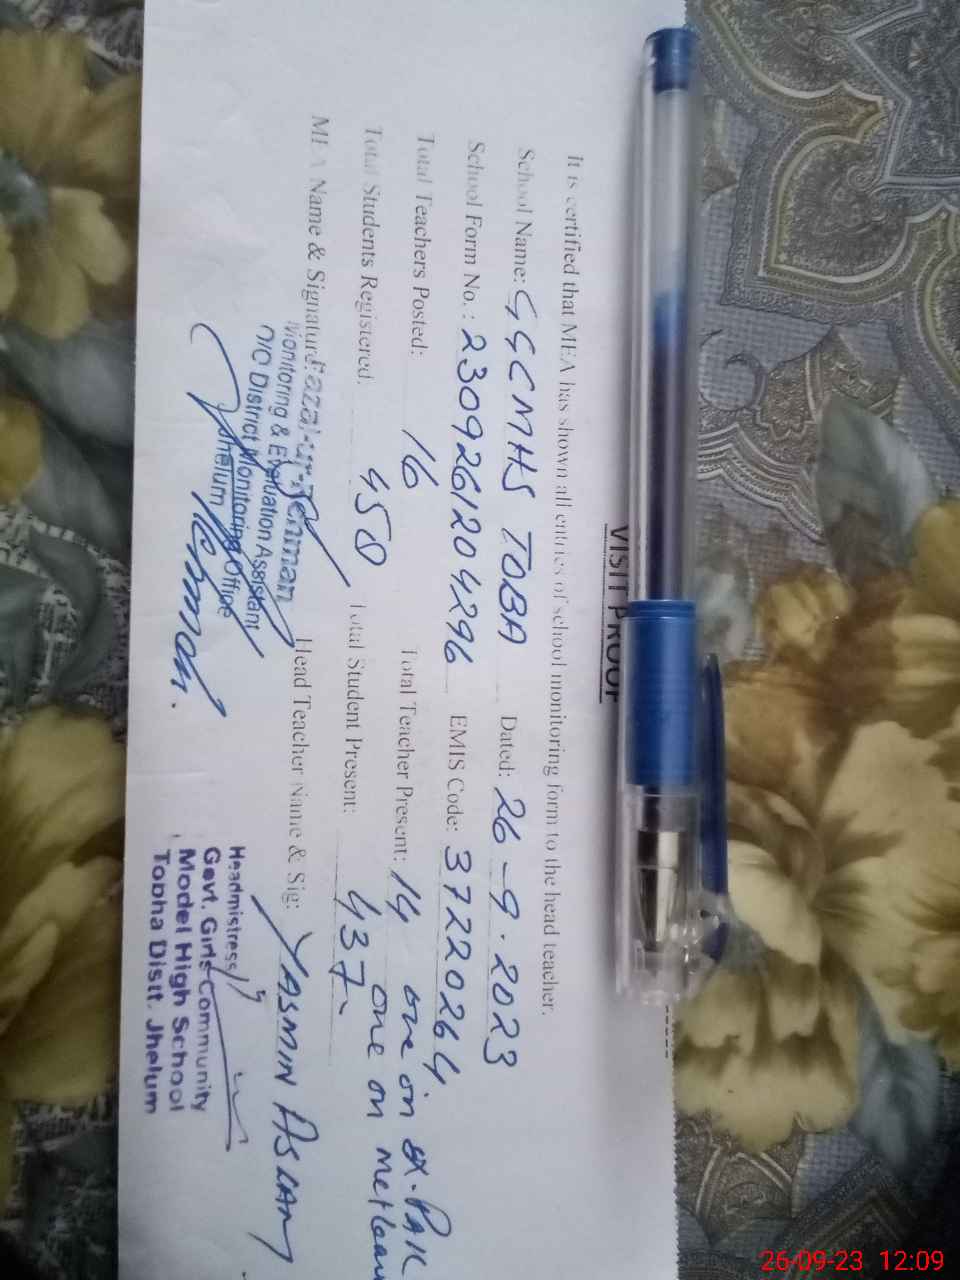 VISIT PROOF
It is certified that MEA has shown all entries of school monitoring form to the head teacher.
School Name: GGCMHS TOBA Dated: 26-9-2023
School Form No.: 2309261204296 EMIS Code: 37220264
Total Teachers Posted: 16 Total Teacher Present: 14 one on ex-PAK
one on
Total Students Registered: 450 Total Student Present: 437
MEA Name & Signature: Fazal-ur-Rehman Head Teacher Name & Sig: YASMIN ASLAM
Monitoring & Evaluation Assistant
O/O District Monitoring Office
Jhelum
Headmistress
Govt. Girls Community
Model High School
Tobha Distt. Jhelum
26-09-23 12:09